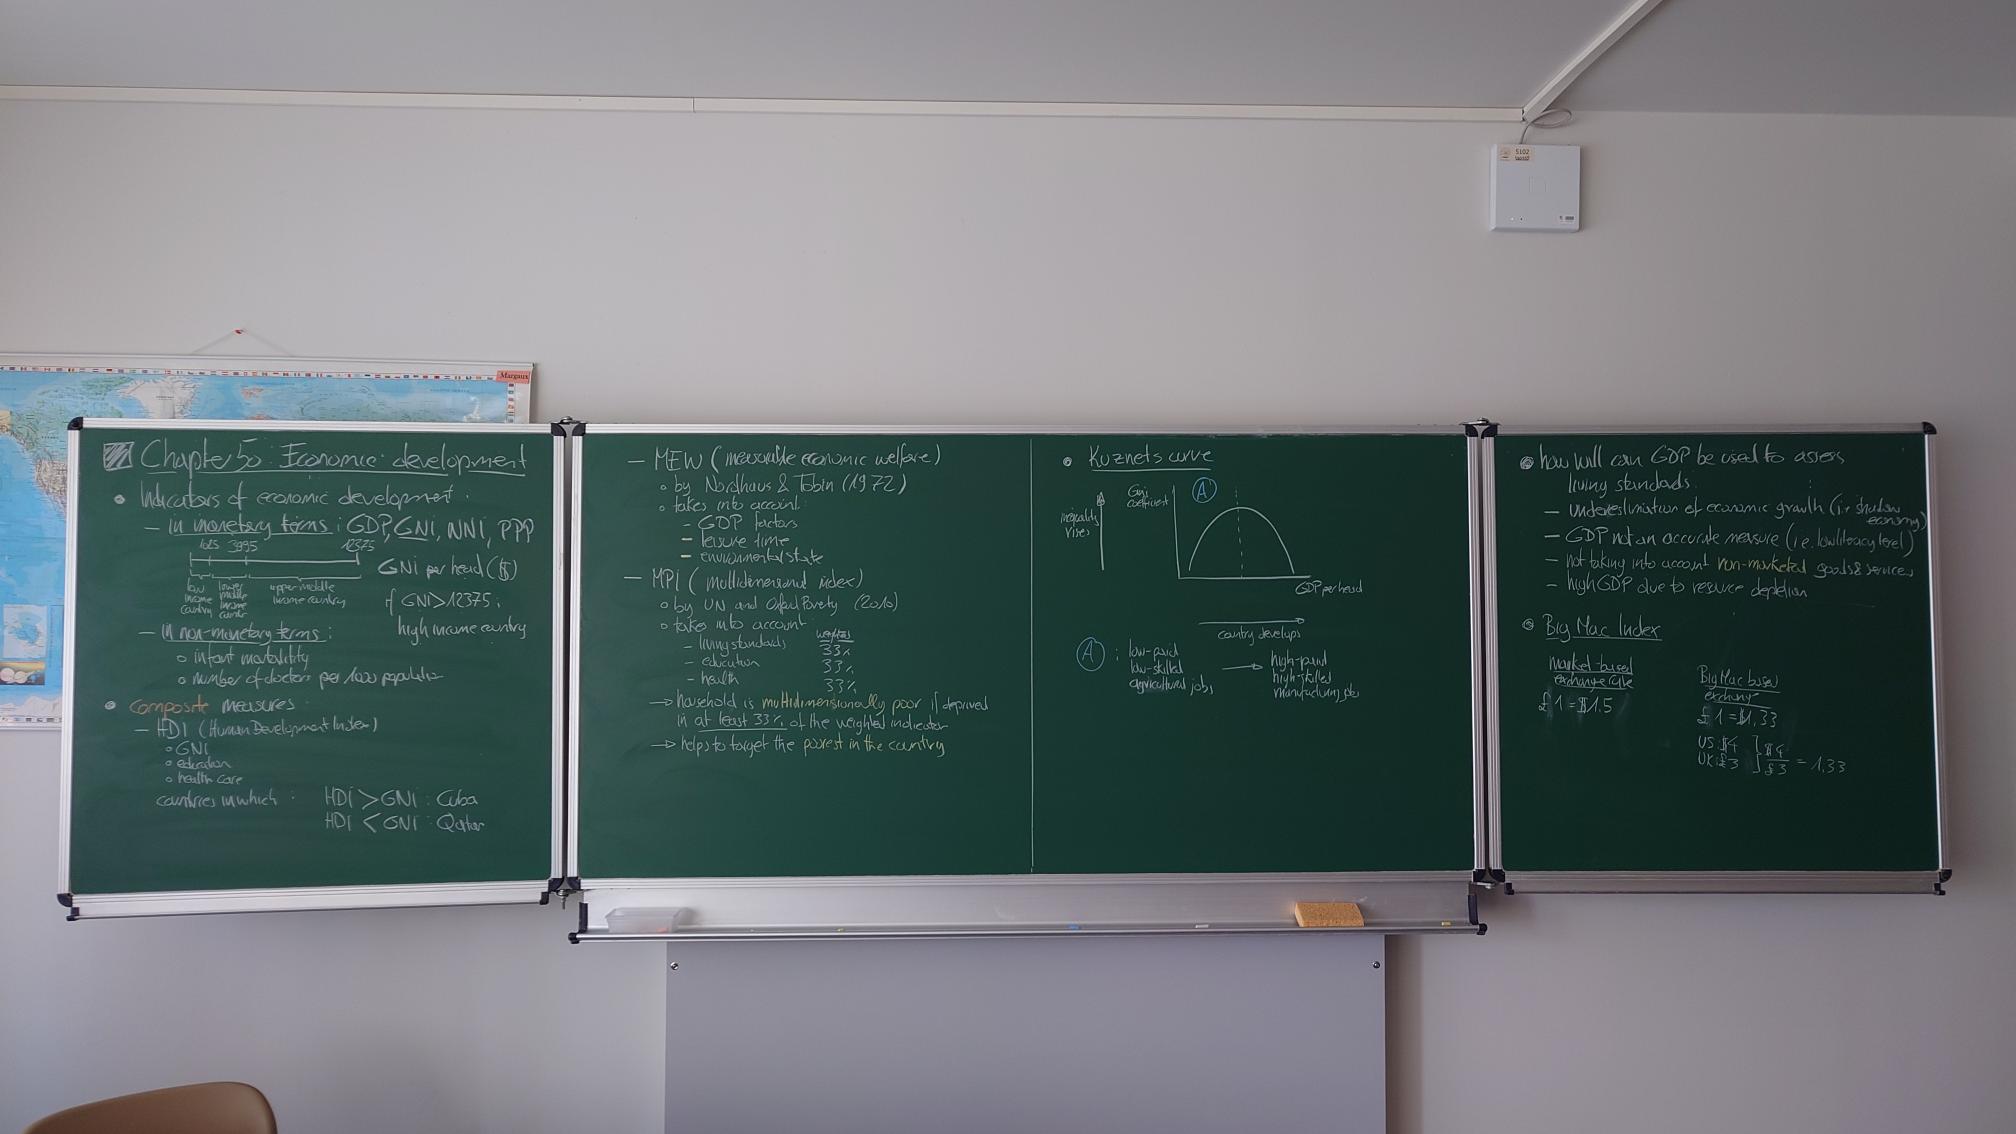 Chapter 50: Economic development
Indicators of economic development:
– in monetary terms: GDP, GNI, NNI, PPP
1025 3995 12375
GNI per head ($)
low income country
lower middle income country
upper middle income country
if GNI > 12375:
high income country
– in non-monetary terms:
infant mortability
number of doctors per 1000 population
Composite measures:
– HDI (Human Development Index)
GNI
education
health care
countries in which: HDI > GNI: Cuba
HDI < GNI: Qatar
– MEW (measurable economic welfare)
by Nordhaus & Tobin (1972)
takes into account:
– GDP factors
– leisure time
– environmental state
– MPI (multidimensional index)
by UN and Oxford Poverty (2010)
takes into account: weights
– living standards 33%
– education 33%
– health 33%
→ household is multidimensionally poor if deprived
in at least 33% of the weighted indicator
→ helps to target the poorest in the country
Kuznets curve
inequality rises
Gini coefficient
A
GDP per head
country develops
A: low-paid low-skilled agricultural jobs → high-paid high-skilled manufacturing jobs
how will can GDP be used to assess
living standards:
– underestimation of economic growth (i.e. shadow economy)
– GDP not an accurate measure (i.e. low literacy level)
– not taking into account non-marketed goods & services
– high GDP due to resource depletion
Big Mac Index
market-based exchange rate
£1 = $1.5
Big Mac based exchange
£1 = $1,33
US: $4
UK: £3
$4
£3
= 1,33
Margaux
5102